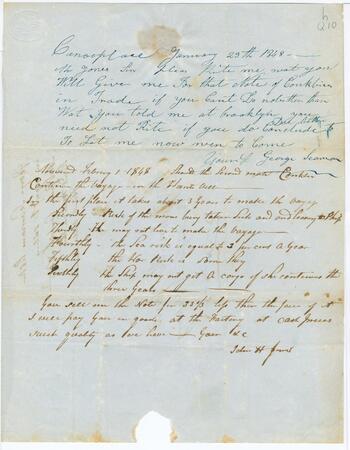 210
Canoeplace January 25th 1848 —
Mr Jones Sir Pleas Rite me wat you
Will Give me For that Note of Conkling
in Trade if you Cant Do no better than
Wat you told me at brooklyn you
need not Rite if you do Conclude to
To Let me now wen to Come
Yours &c George Seaman
Answered February 1 1848 Should the Second mate Conklin
Continue the Voyage in the
In the first place it takes about 3 years to make the voyage
Secondly Risk of the man being taken Sick and leaving the Ship
Thirdly He may not live to make the voyage
Fourthly the Sea risk is equal to 3 per cent a year
Fifthly the War Risk is
Sixthly the Ship may not get A cargo if she continues the
three years
You sell me the Note for 33⅓ less than the face of it
I will pay you in goods, at the Factory at Cash prices
Such quality as we have — Yours &c
John H Jones